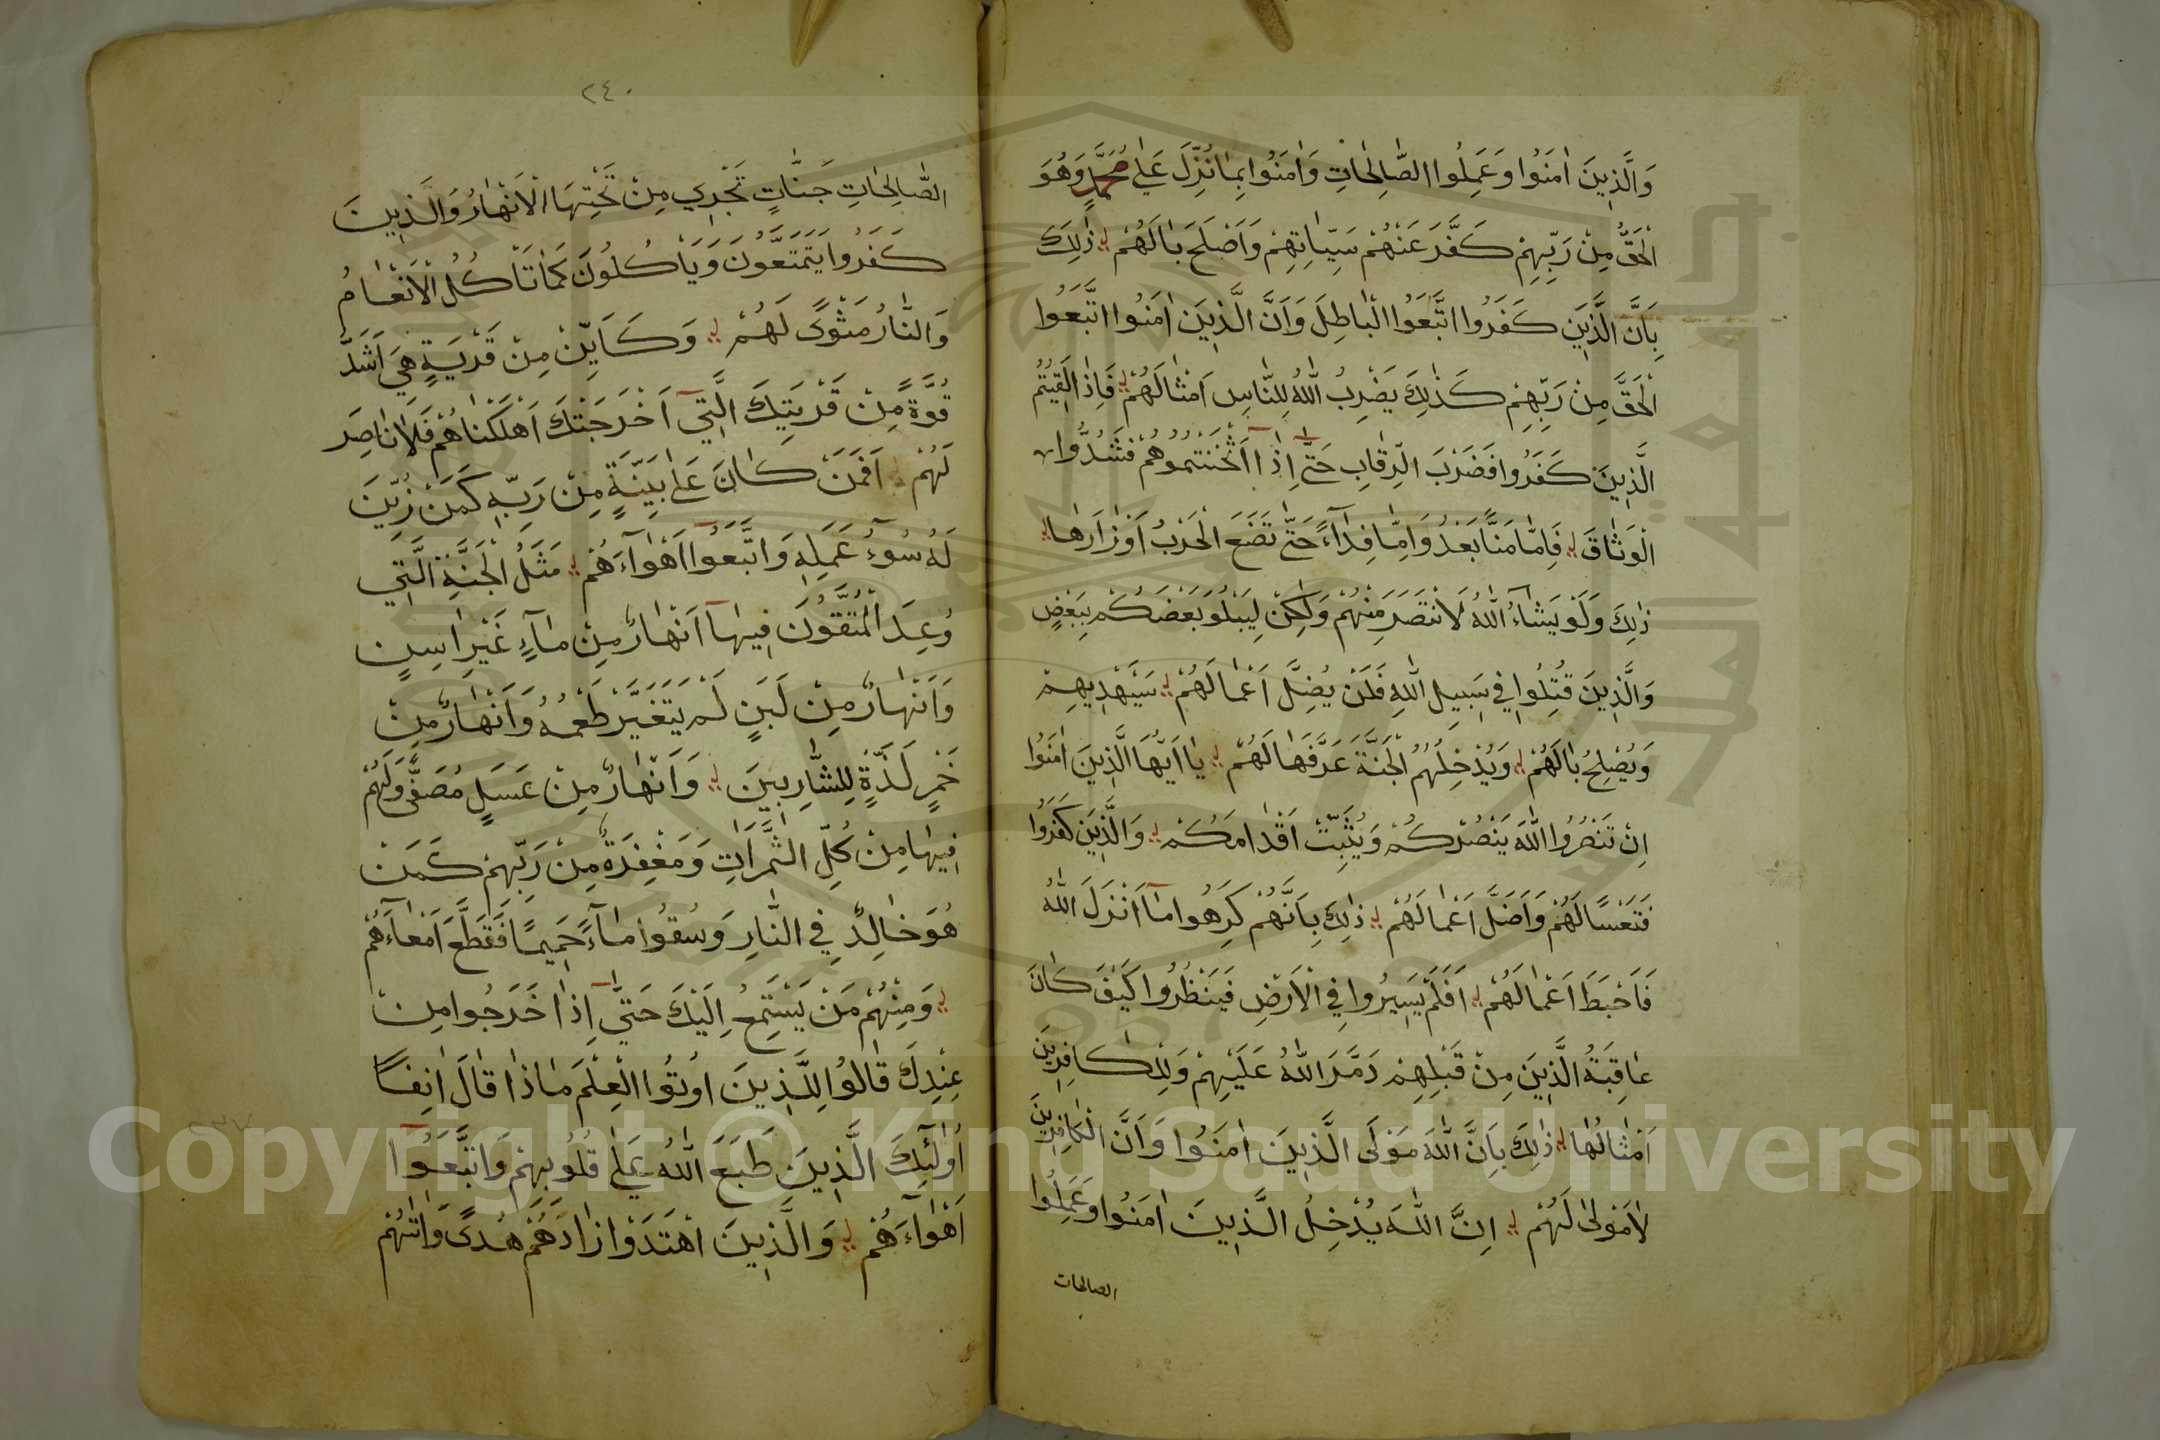 وَالَّذِينَ اٰمَنُوا وَعَمِلُوا الصَّالِحَاتِ وَاٰمَنُوا بِمَا نُزِّلَ عَلٰى مُحَمَّدٍ وَهُوَ
الْحَقُّ مِنْ رَبِّهِمْ كَفَّرَ عَنْهُمْ سَيِّاٰتِهِمْ وَاَصْلَحَ بَالَهُمْ ذٰلِكَ
بِاَنَّ الَّذِينَ كَفَرُوا اتَّبَعُوا الْبَاطِلَ وَاَنَّ الَّذِينَ اٰمَنُوا اتَّبَعُوا
الْحَقَّ مِنْ رَبِّهِمْ كَذٰلِكَ يَضْرِبُ اللّٰهُ لِلنَّاسِ اَمْثَالَهُمْ فَاِذَا لَقِيتُمُ
الَّذِينَ كَفَرُوا فَضَرْبَ الرِّقَابِ حَتّٰى اِذَا اَثْخَنْتُمُوهُمْ فَشُدُّوا
الْوَثَاقَ فَاِمَّا مَنًّا بَعْدُ وَاِمَّا فِدَآءً حَتّٰى تَضَعَ الْحَرْبُ اَوْزَارَهَا
ذٰلِكَ وَلَوْ يَشَاءُ اللّٰهُ لَانْتَصَرَ مِنْهُمْ وَلٰكِنْ لِيَبْلُوَ بَعْضَكُمْ بِبَعْضٍ
وَالَّذِينَ قُتِلُوا فِي سَبِيلِ اللّٰهِ فَلَنْ يُضِلَّ اَعْمَالَهُمْ سَيَهْدِيهِمْ
وَيُصْلِحُ بَالَهُمْ وَيُدْخِلُهُمُ الْجَنَّةَ عَرَّفَهَا لَهُمْ يَا اَيُّهَا الَّذِينَ اٰمَنُوا
اِنْ تَنْصُرُوا اللّٰهَ يَنْصُرْكُمْ وَيُثَبِّتْ اَقْدَامَكُمْ وَالَّذِينَ كَفَرُوا
فَتَعْسًا لَهُمْ وَاَضَلَّ اَعْمَالَهُمْ ذٰلِكَ بِاَنَّهُمْ كَرِهُوا مَآ اَنْزَلَ اللّٰهُ
فَاَحْبَطَ اَعْمَالَهُمْ اَفَلَمْ يَسِيرُوا فِي الْاَرْضِ فَيَنْظُرُوا كَيْفَ كَانَ
عَاقِبَةُ الَّذِينَ مِنْ قَبْلِهِمْ دَمَّرَ اللّٰهُ عَلَيْهِمْ وَلِلْكَافِرِينَ
اَمْثَالُهَا ذٰلِكَ بِاَنَّ اللّٰهَ مَوْلَى الَّذِينَ اٰمَنُوا وَاَنَّ الْكَافِرِينَ
لَا مَوْلٰى لَهُمْ اِنَّ اللّٰهَ يُدْخِلُ الَّذِينَ اٰمَنُوا وَعَمِلُوا
الصالحات
٢٤٠
الصَّالِحَاتِ جَنَّاتٍ تَجْرِي مِنْ تَحْتِهَا الْاَنْهَارُ وَالَّذِينَ
كَفَرُوا يَتَمَتَّعُونَ وَيَاْكُلُونَ كَمَا تَاْكُلُ الْاَنْعَامُ
وَالنَّارُ مَثْوًى لَهُمْ وَكَاَيِّنْ مِنْ قَرْيَةٍ هِيَ اَشَدُّ
قُوَّةً مِنْ قَرْيَتِكَ الَّتِي اَخْرَجَتْكَ اَهْلَكْنَاهُمْ فَلَا نَاصِرَ
لَهُمْ اَفَمَنْ كَانَ عَلٰى بَيِّنَةٍ مِنْ رَبِّهِ كَمَنْ زُيِّنَ
لَهُ سُوءُ عَمَلِهِ وَاتَّبَعُوا اَهْوَآءَهُمْ مَثَلُ الْجَنَّةِ الَّتِي
وُعِدَ الْمُتَّقُونَ فِيهَآ اَنْهَارٌ مِنْ مَآءٍ غَيْرِ اٰسِنٍ
وَاَنْهَارٌ مِنْ لَبَنٍ لَمْ يَتَغَيَّرْ طَعْمُهُ وَاَنْهَارٌ مِنْ
خَمْرٍ لَذَّةٍ لِلشَّارِبِينَ وَاَنْهَارٌ مِنْ عَسَلٍ مُصَفًّى وَلَهُمْ
فِيهَا مِنْ كُلِّ الثَّمَرَاتِ وَمَغْفِرَةٌ مِنْ رَبِّهِمْ كَمَنْ
هُوَ خَالِدٌ فِي النَّارِ وَسُقُوا مَآءً حَمِيمًا فَقَطَّعَ اَمْعَآءَهُمْ
وَمِنْهُمْ مَنْ يَسْتَمِعُ اِلَيْكَ حَتّٰى اِذَا خَرَجُوا مِنْ
عِنْدِكَ قَالُوا لِلَّذِينَ اُوتُوا الْعِلْمَ مَاذَا قَالَ اٰنِفًا
اُولٰئِكَ الَّذِينَ طَبَعَ اللّٰهُ عَلٰى قُلُوبِهِمْ وَاتَّبَعُوا
اَهْوَآءَهُمْ وَالَّذِينَ اهْتَدَوْا زَادَهُمْ هُدًى وَاٰتٰهُمْ
Copyright © King Saud University